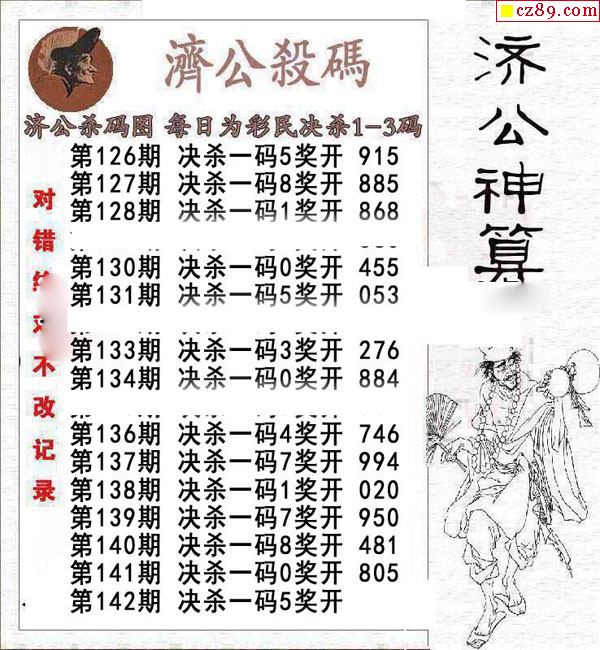 cz89.com
濟公殺碼
济公杀码图 每日为彩民决杀1-3码
第126期 决杀一码5奖开 915
第127期 决杀一码8奖开 885
第128期 决杀一码1奖开 868
第130期 决杀一码0奖开 455
第131期 决杀一码5奖开 053
第133期 决杀一码3奖开 276
第134期 决杀一码0奖开 884
第136期 决杀一码4奖开 746
第137期 决杀一码7奖开 994
第138期 决杀一码1奖开 020
第139期 决杀一码7奖开 950
第140期 决杀一码8奖开 481
第141期 决杀一码0奖开 805
第142期 决杀一码5奖开
对错 不改记录
济公神算